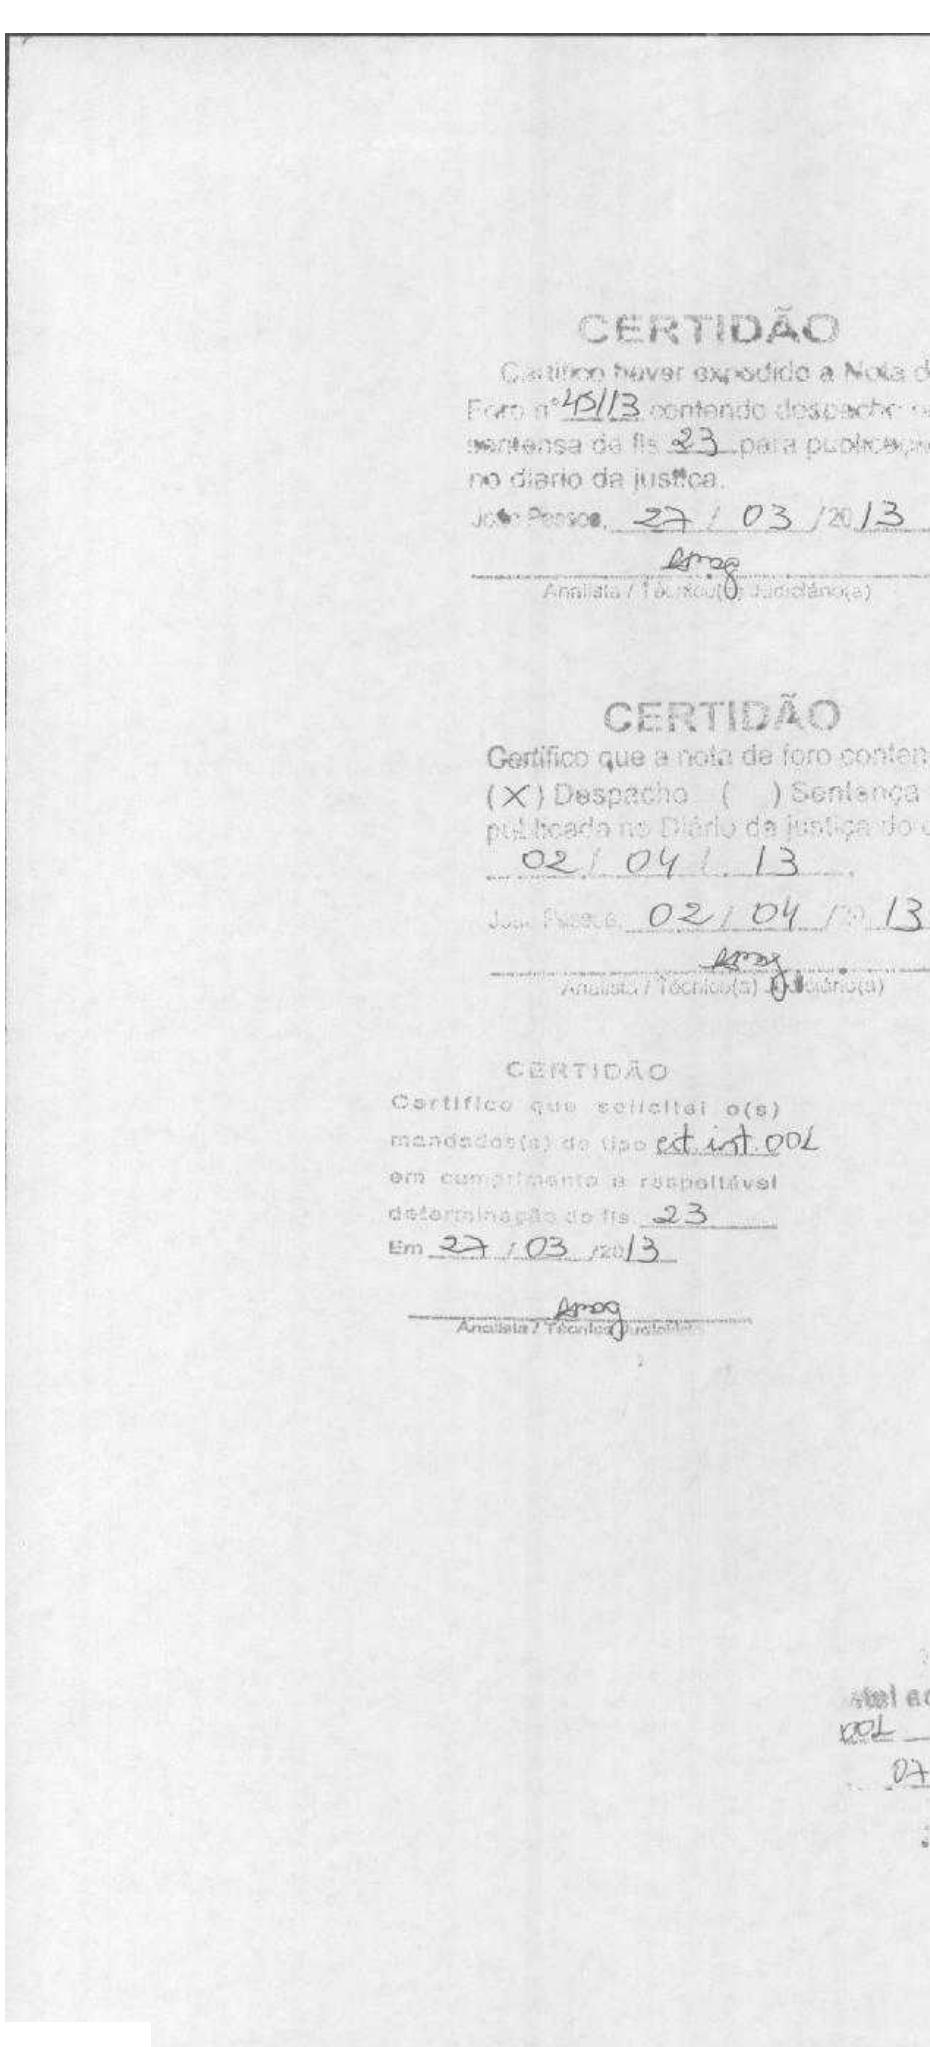 CERTIDÃO
Certifico haver expedido a Nota d
Foro nº 45/13 contendo despacho
sentensa de fls 23 para publicaçã
no diario da justica.
João Pessoa, 27 / 03 /20 13
Analista / Técnico(a) Judiciário(a)
CERTIDÃO
Certifico que a nota de foro conten
(X) Despacho ( ) Sentença
publicada no Diário da justiça do
02 / 04 / 13
João Pessoa, 02 / 04 /20 13
Analista / Técnico(a) Judiciário(a)
CERTIDÃO
Certifico que solicitei o(s)
mandados(s) do tipo
em cumprimento a respeitável
determinação de fls. 23
Em 27 / 03 /20 13
Analista / Técnico Judiciário
07